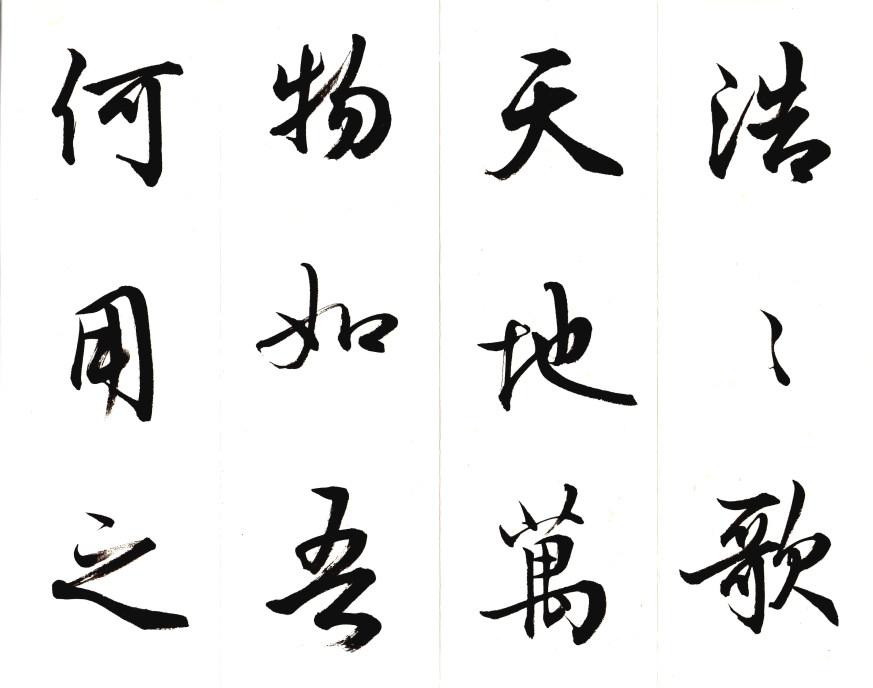 浩〻歌
天地萬
物如吾
何用之